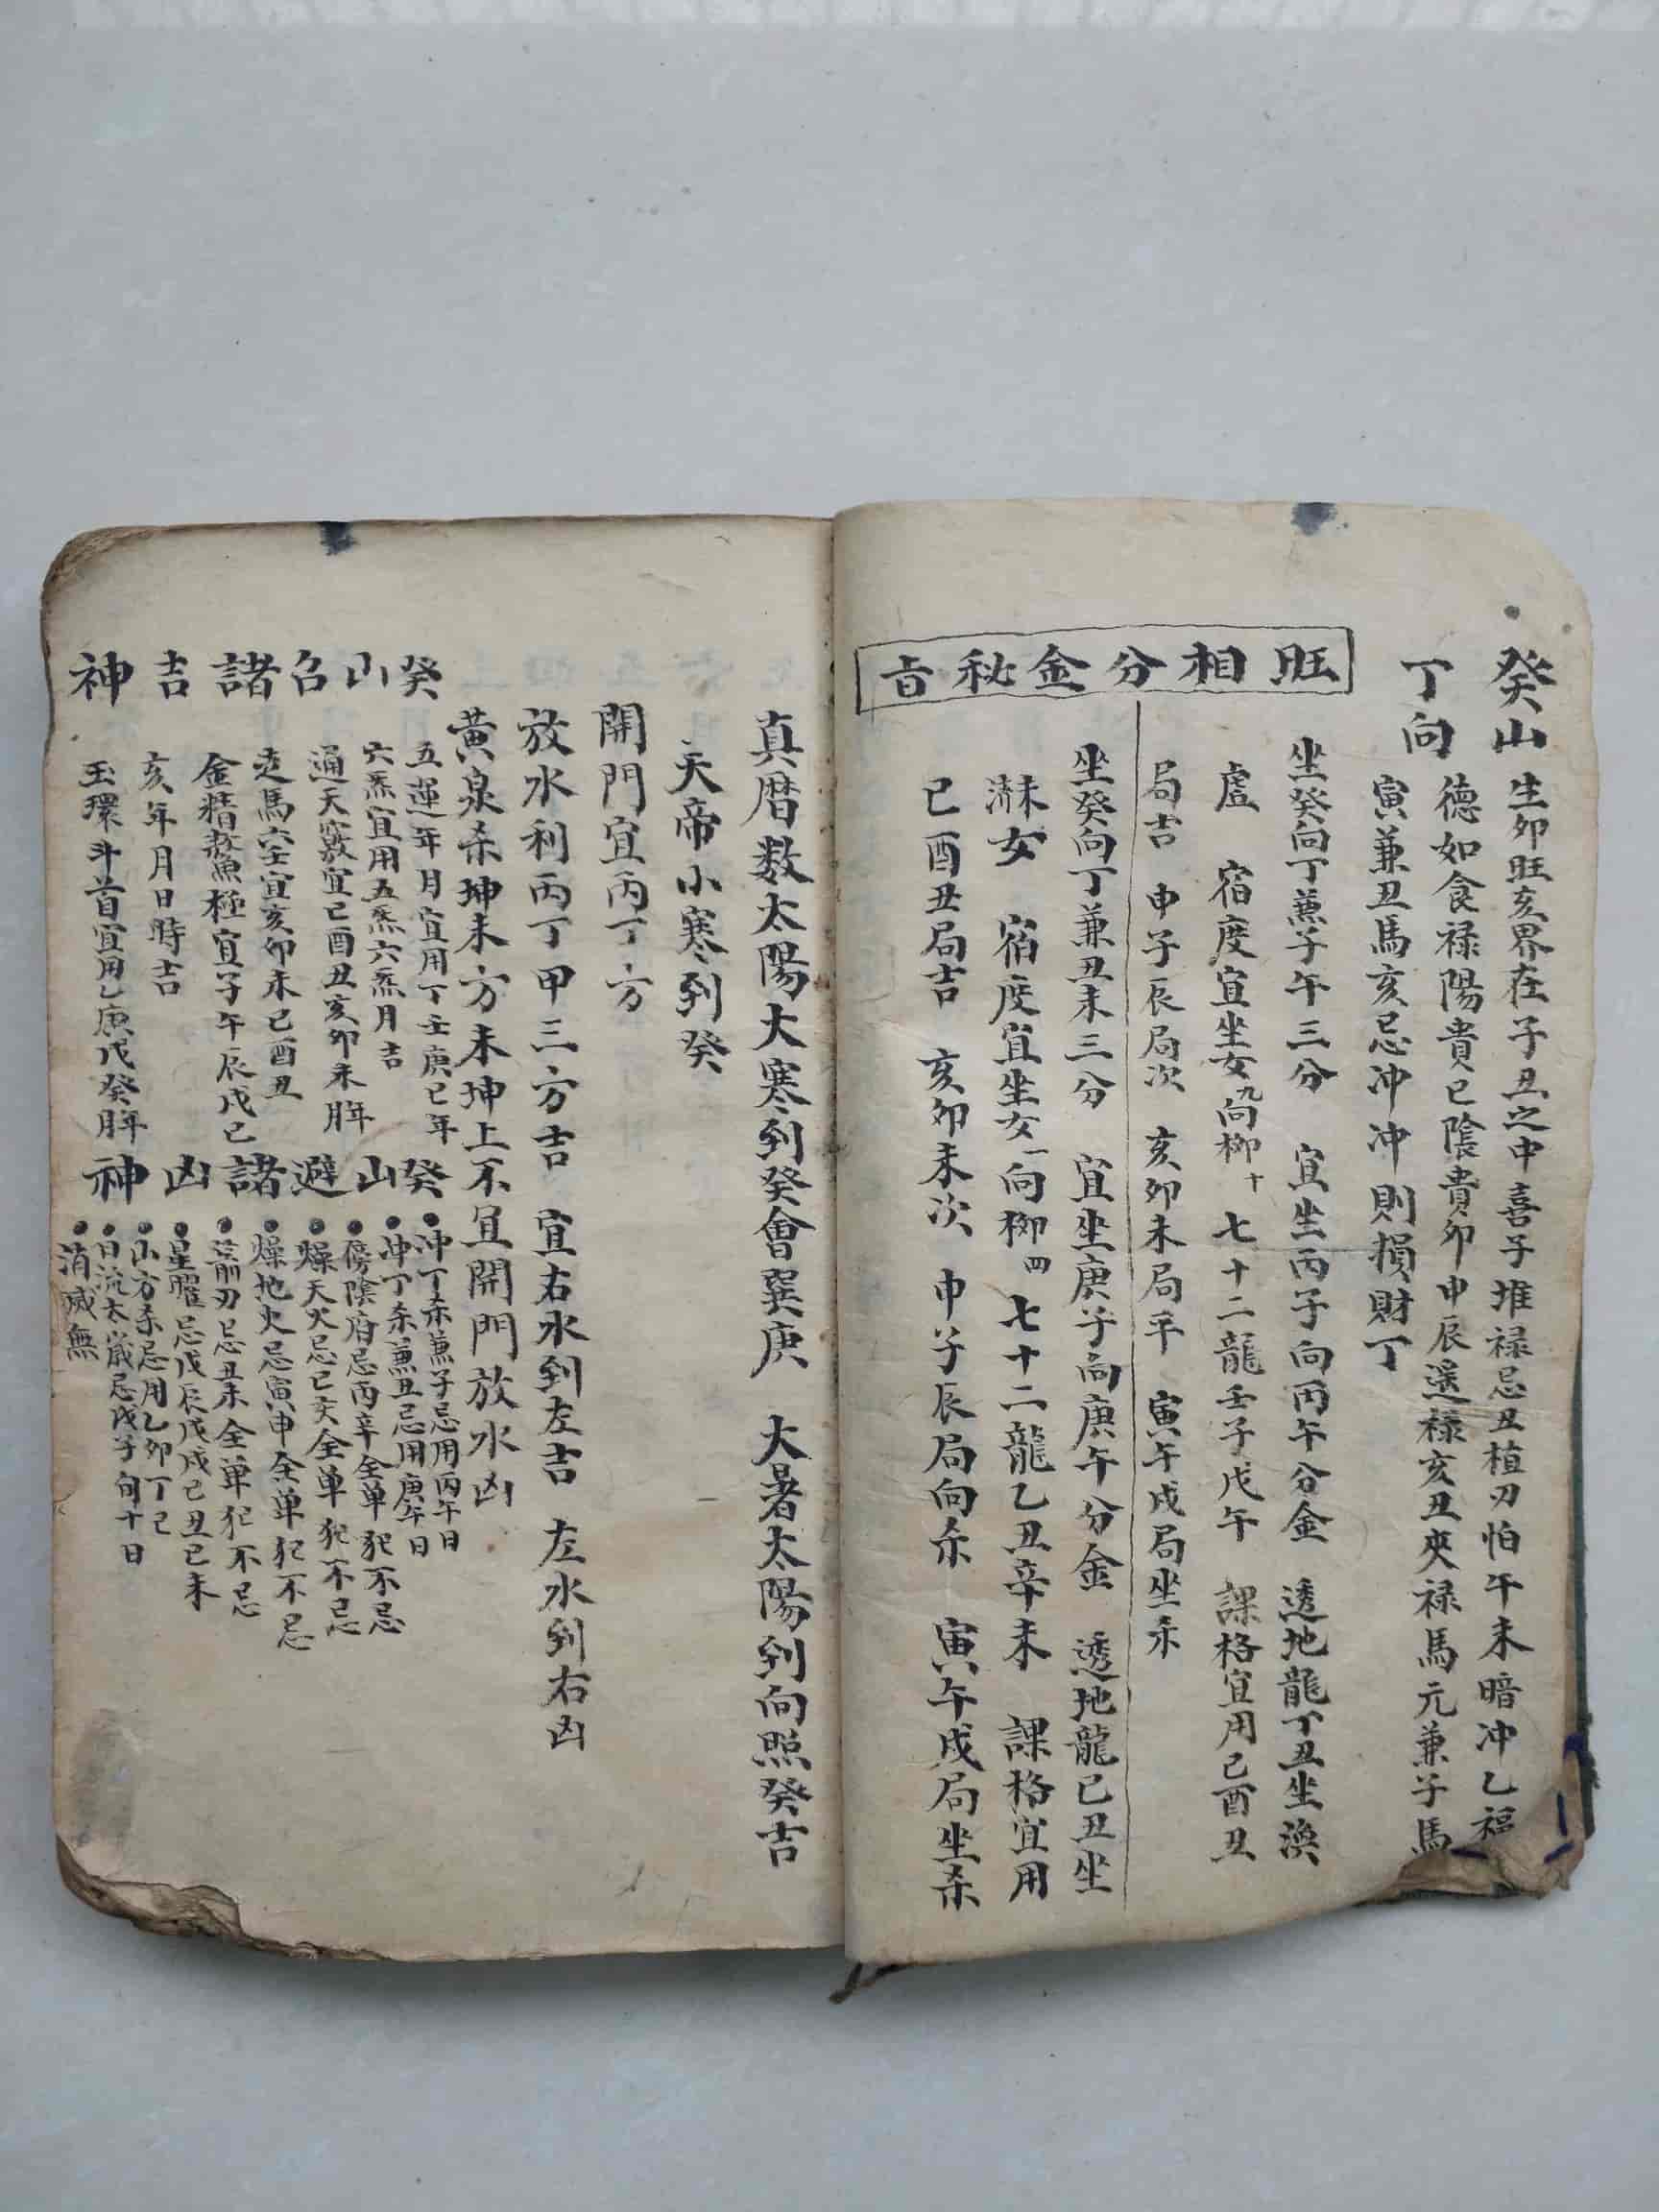 癸山
丁向
生卯旺亥界在子丑之中喜子堆禄忌丑植刃怕午未暗冲乙福
德如食禄陽貴巳陰貴卯申辰遥禄亥丑夾禄馬元兼子馬
寅兼丑馬亥忌冲冲則損財丁
旺相分金秘旨
坐癸向丁兼子午三分 宜坐丙子向丙午分金 透地龍丁丑坐渙
虛 宿度宜坐女九向柳十 七十二龍壬子戊午 課格宜用巳酉丑
局吉 申子辰局次 亥卯未局平 寅午戌局坐杀
坐癸向丁兼丑未三分 宜坐庚子向庚午分金 透地龍己丑坐
女 宿度宜坐女一向柳四 七十二龍乙丑辛未 課格宜用
巳酉丑局吉 亥卯未次 申子辰局向杀 寅午戌局坐杀
真曆数太陽大寒到癸會巽庚 大暑太陽到向照癸吉
天帝小寒到癸
開門宜丙丁方
放水利丙丁甲三方吉 宜右水到左吉 左水到右凶
黃泉杀坤未方未坤上不宜開門放水凶
癸山召諸吉神
五運年月宜用丁壬庚己年
六炁宜用五炁六炁月吉
通天竅宜巳酉丑亥卯未年月
走馬六壬宜亥卯未巳酉丑
金精鰲極宜子午辰戌巳
亥年月日時吉
玉環斗首宜用乙庚戊癸年月
癸山避諸凶神
冲丁杀兼子忌用丙午日
冲丁杀兼丑忌用庚午日
傍陰府忌丙辛全单犯不忌
燥天火忌巳亥全单犯不忌
燥地火忌寅申全单犯不忌
箭刃忌丑未全单犯不忌
星曜忌戊辰戊戌己丑己未
山方杀忌用乙卯丁巳
日流太歲忌戊子旬十日
消滅無